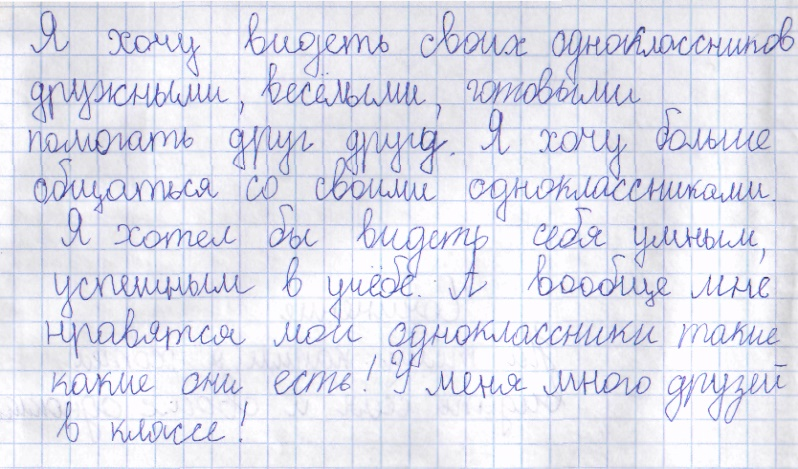 Я хочу видеть своих одноклассников
дружными, весёлыми, готовыми
помогать друг другу. Я хочу больше
общаться со своими одноклассниками.
Я хотел бы видеть себя умным,
успешным в учёбе. А вообще мне
нравятся мои одноклассники такие
какие они есть! У меня много друзей
в классе!